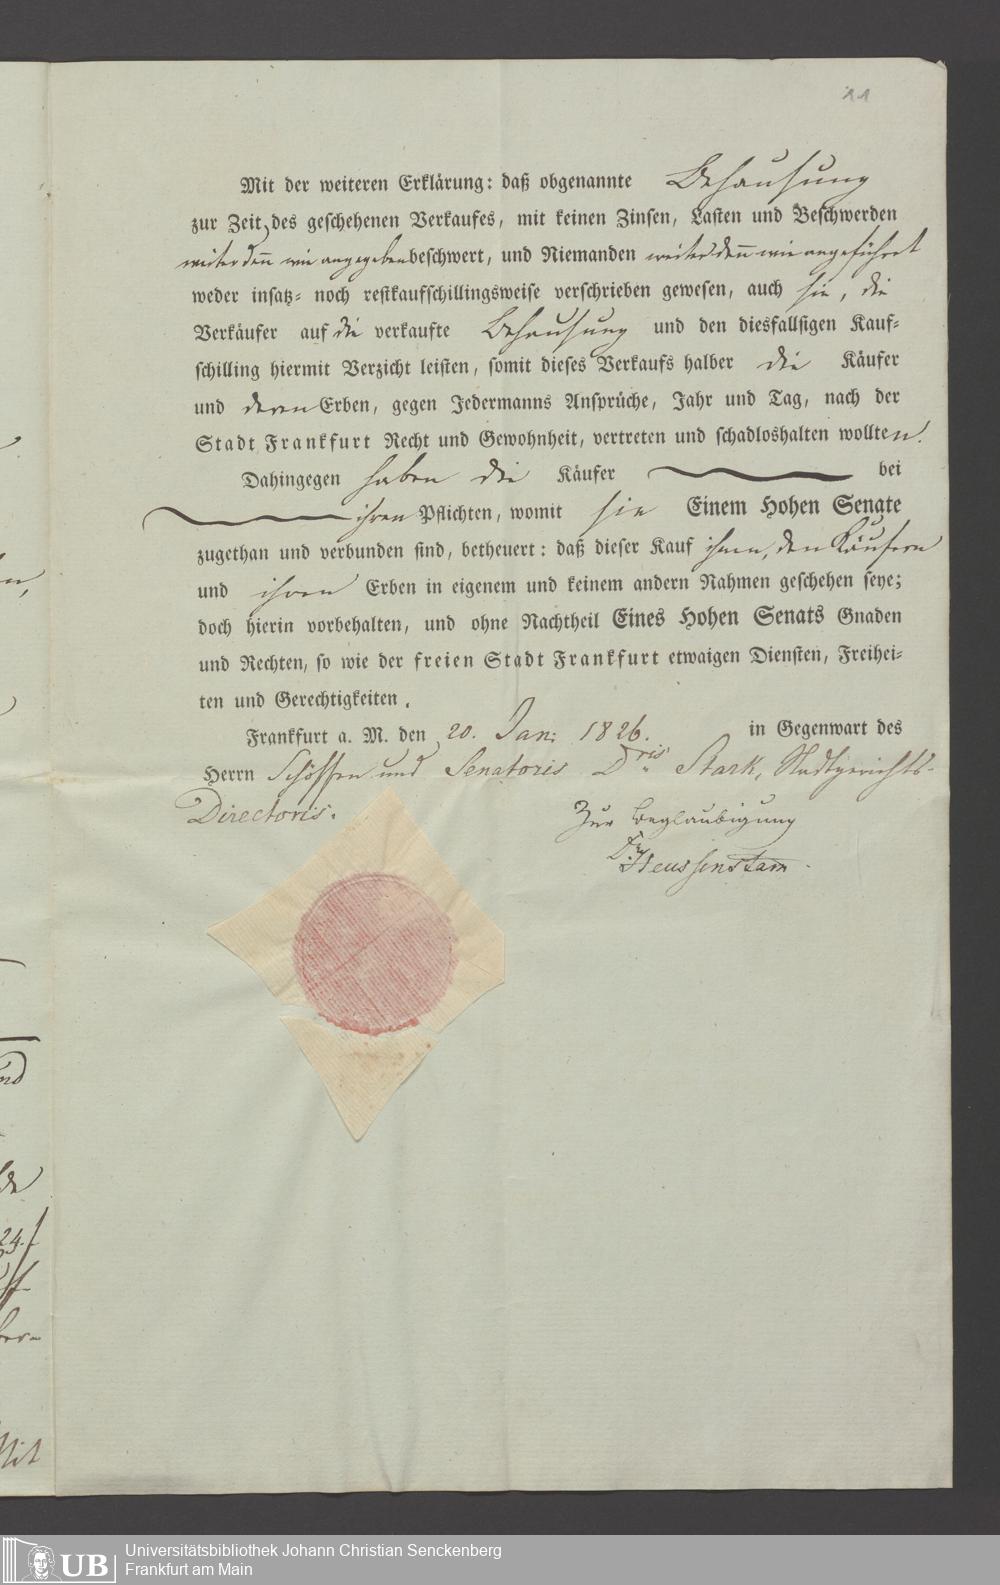 11
Mit der weiteren Erklärung: daß obgenannte Behausung
zur Zeit des geschehenen Verkaufes, mit keinen Zinsen, Lasten und Beschwerden
weiter den̄ wie angegeben beschwert, und Niemanden weiter den̄ wie angeführt
weder insatz- noch restkaufschillingsweise verschrieben gewesen, auch sie, die
Verkäufer auf die verkaufte Behausung und den diesfallsigen Kauf-
schilling hiermit Verzicht leisten, somit dieses Verkaufs halber die Käufer
und deren Erben, gegen Jedermanns Ansprüche, Jahr und Tag, nach der
Stadt Frankfurt Recht und Gewohnheit, vertreten und schadloshalten wollten.
Dahingegen haben die Käufer bei
ihren Pflichten, womit sie Einem Hohen Senate
zugethan und verbunden sind, betheuert: daß dieser Kauf ihnen, den Käufern
und ihren Erben in eigenem und keinem andern Nahmen geschehen seye;
doch hierin vorbehalten, und ohne Nachtheil Eines Hohen Senats Gnaden
und Rechten, so wie der freien Stadt Frankfurt etwaigen Diensten, Freihei-
ten und Gerechtigkeiten.
Frankfurt a. M. den 20. Jan: 1826. in Gegenwart des
Herrn Schöffen und Senatoris Dris Stark, Stadtgerichts-
Directoris.
Zur Beglaubigung
Dr Heussenstam.
nd
24.
ber-
Mit
UB
Universitätsbibliothek Johann Christian Senckenberg
Frankfurt am Main